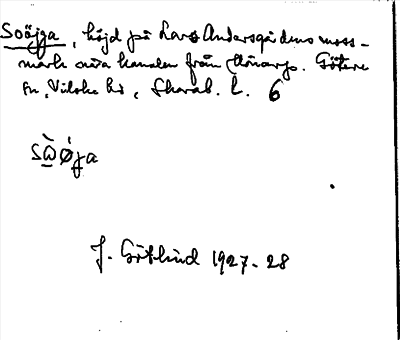 Soöjja, höjd på Lars Andersgårdens moss-
mark nära kanalen från Mönarp. Götene
sn, Vilske hd, Skarab. L. 6
sὼǿja
J. Götlind 1927-28